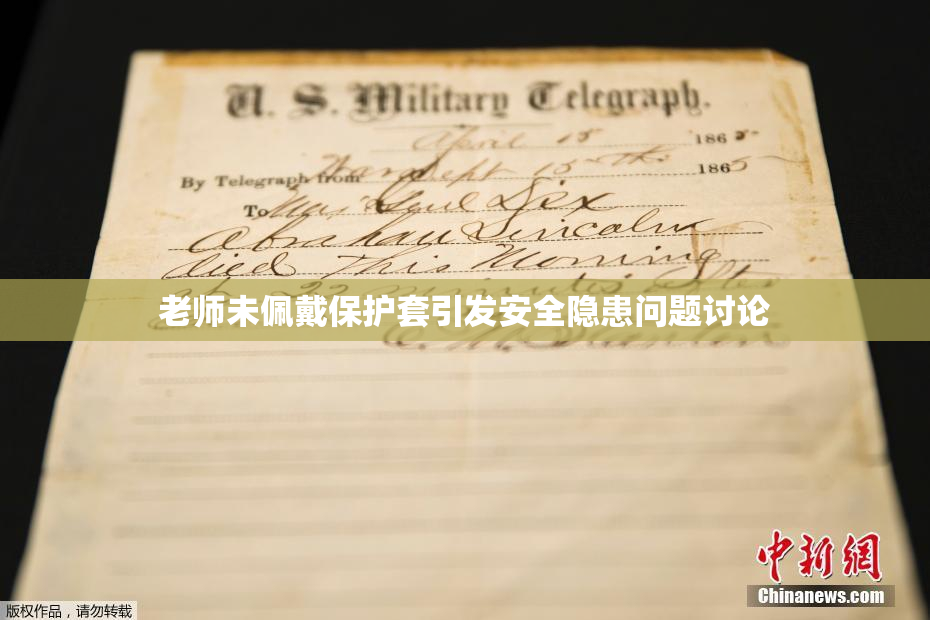 U. S. Military Telegraph.
April 15 1865
By Telegraph from War Dept 15th 1865
To Maj Genl Dix
Abraham Lincoln
died This Morning
at 22 minutes after
老师未佩戴保护套引发安全隐患问题讨论
中新網
Chinanews.com
版权作品，请勿转载